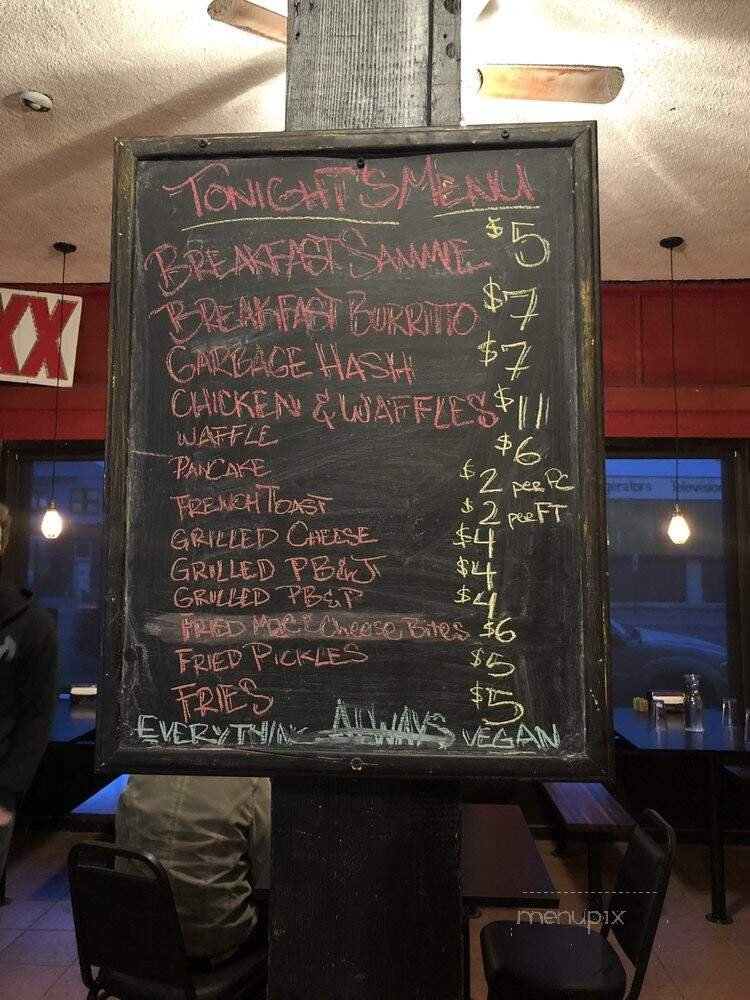 TONIGHT'S MENU
BREAKFAST SAMMIE $5
BREAKFAST BURRITTO $7
GARBAGE HASH $7
CHICKEN & WAFFLES $11
WAFFLE $6
PANCAKE $2 per PC
FRENCH TOAST $2 per FT
GRILLED CHEESE $4
GRILLED PB&J $4
GRILLED PB&P $4
FRIED MAC & Cheese Bites $6
FRIED PICKLES $5
FRIES $5
EVERYTHING ALWAYS VEGAN
XX
gerators Television
menupix